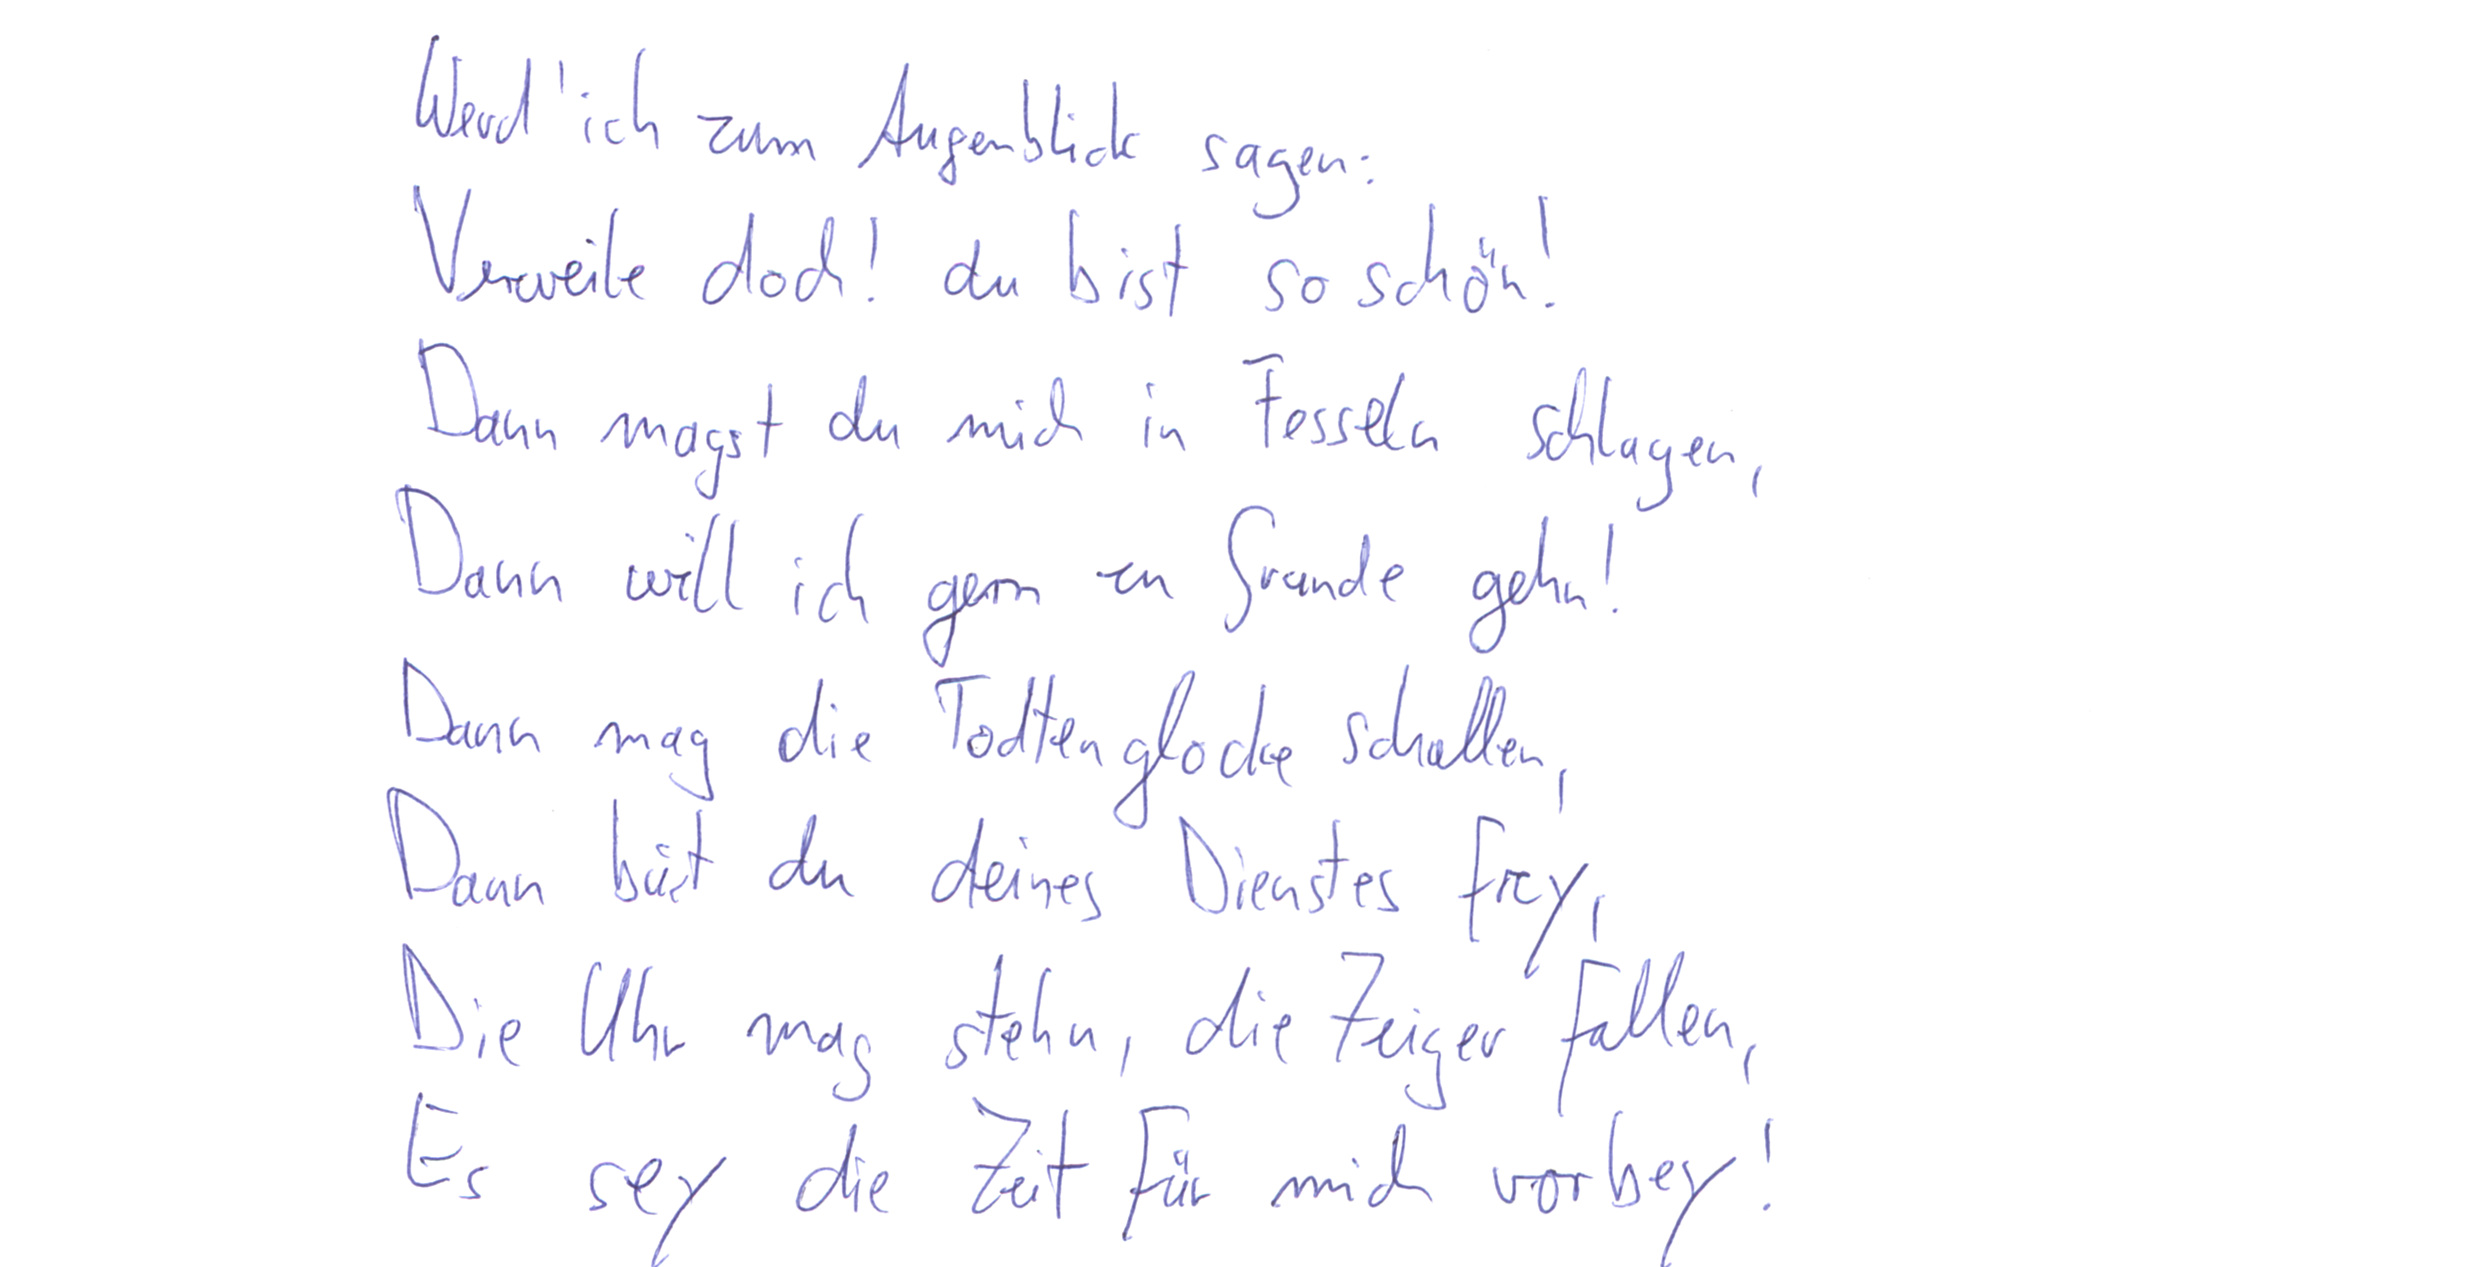 Werd' ich zum Augenblick sagen:
Verweile doch! du bist so schön!
Dann magst du mich in Fesseln schlagen,
Dann will ich gern zu Grunde gehn!
Dann mag die Todtenglocke schallen,
Dann bist du deines Dienstes frey,
Die Uhr mag stehn, die Zeiger fallen,
Es sey die Zeit für mich vorbey!